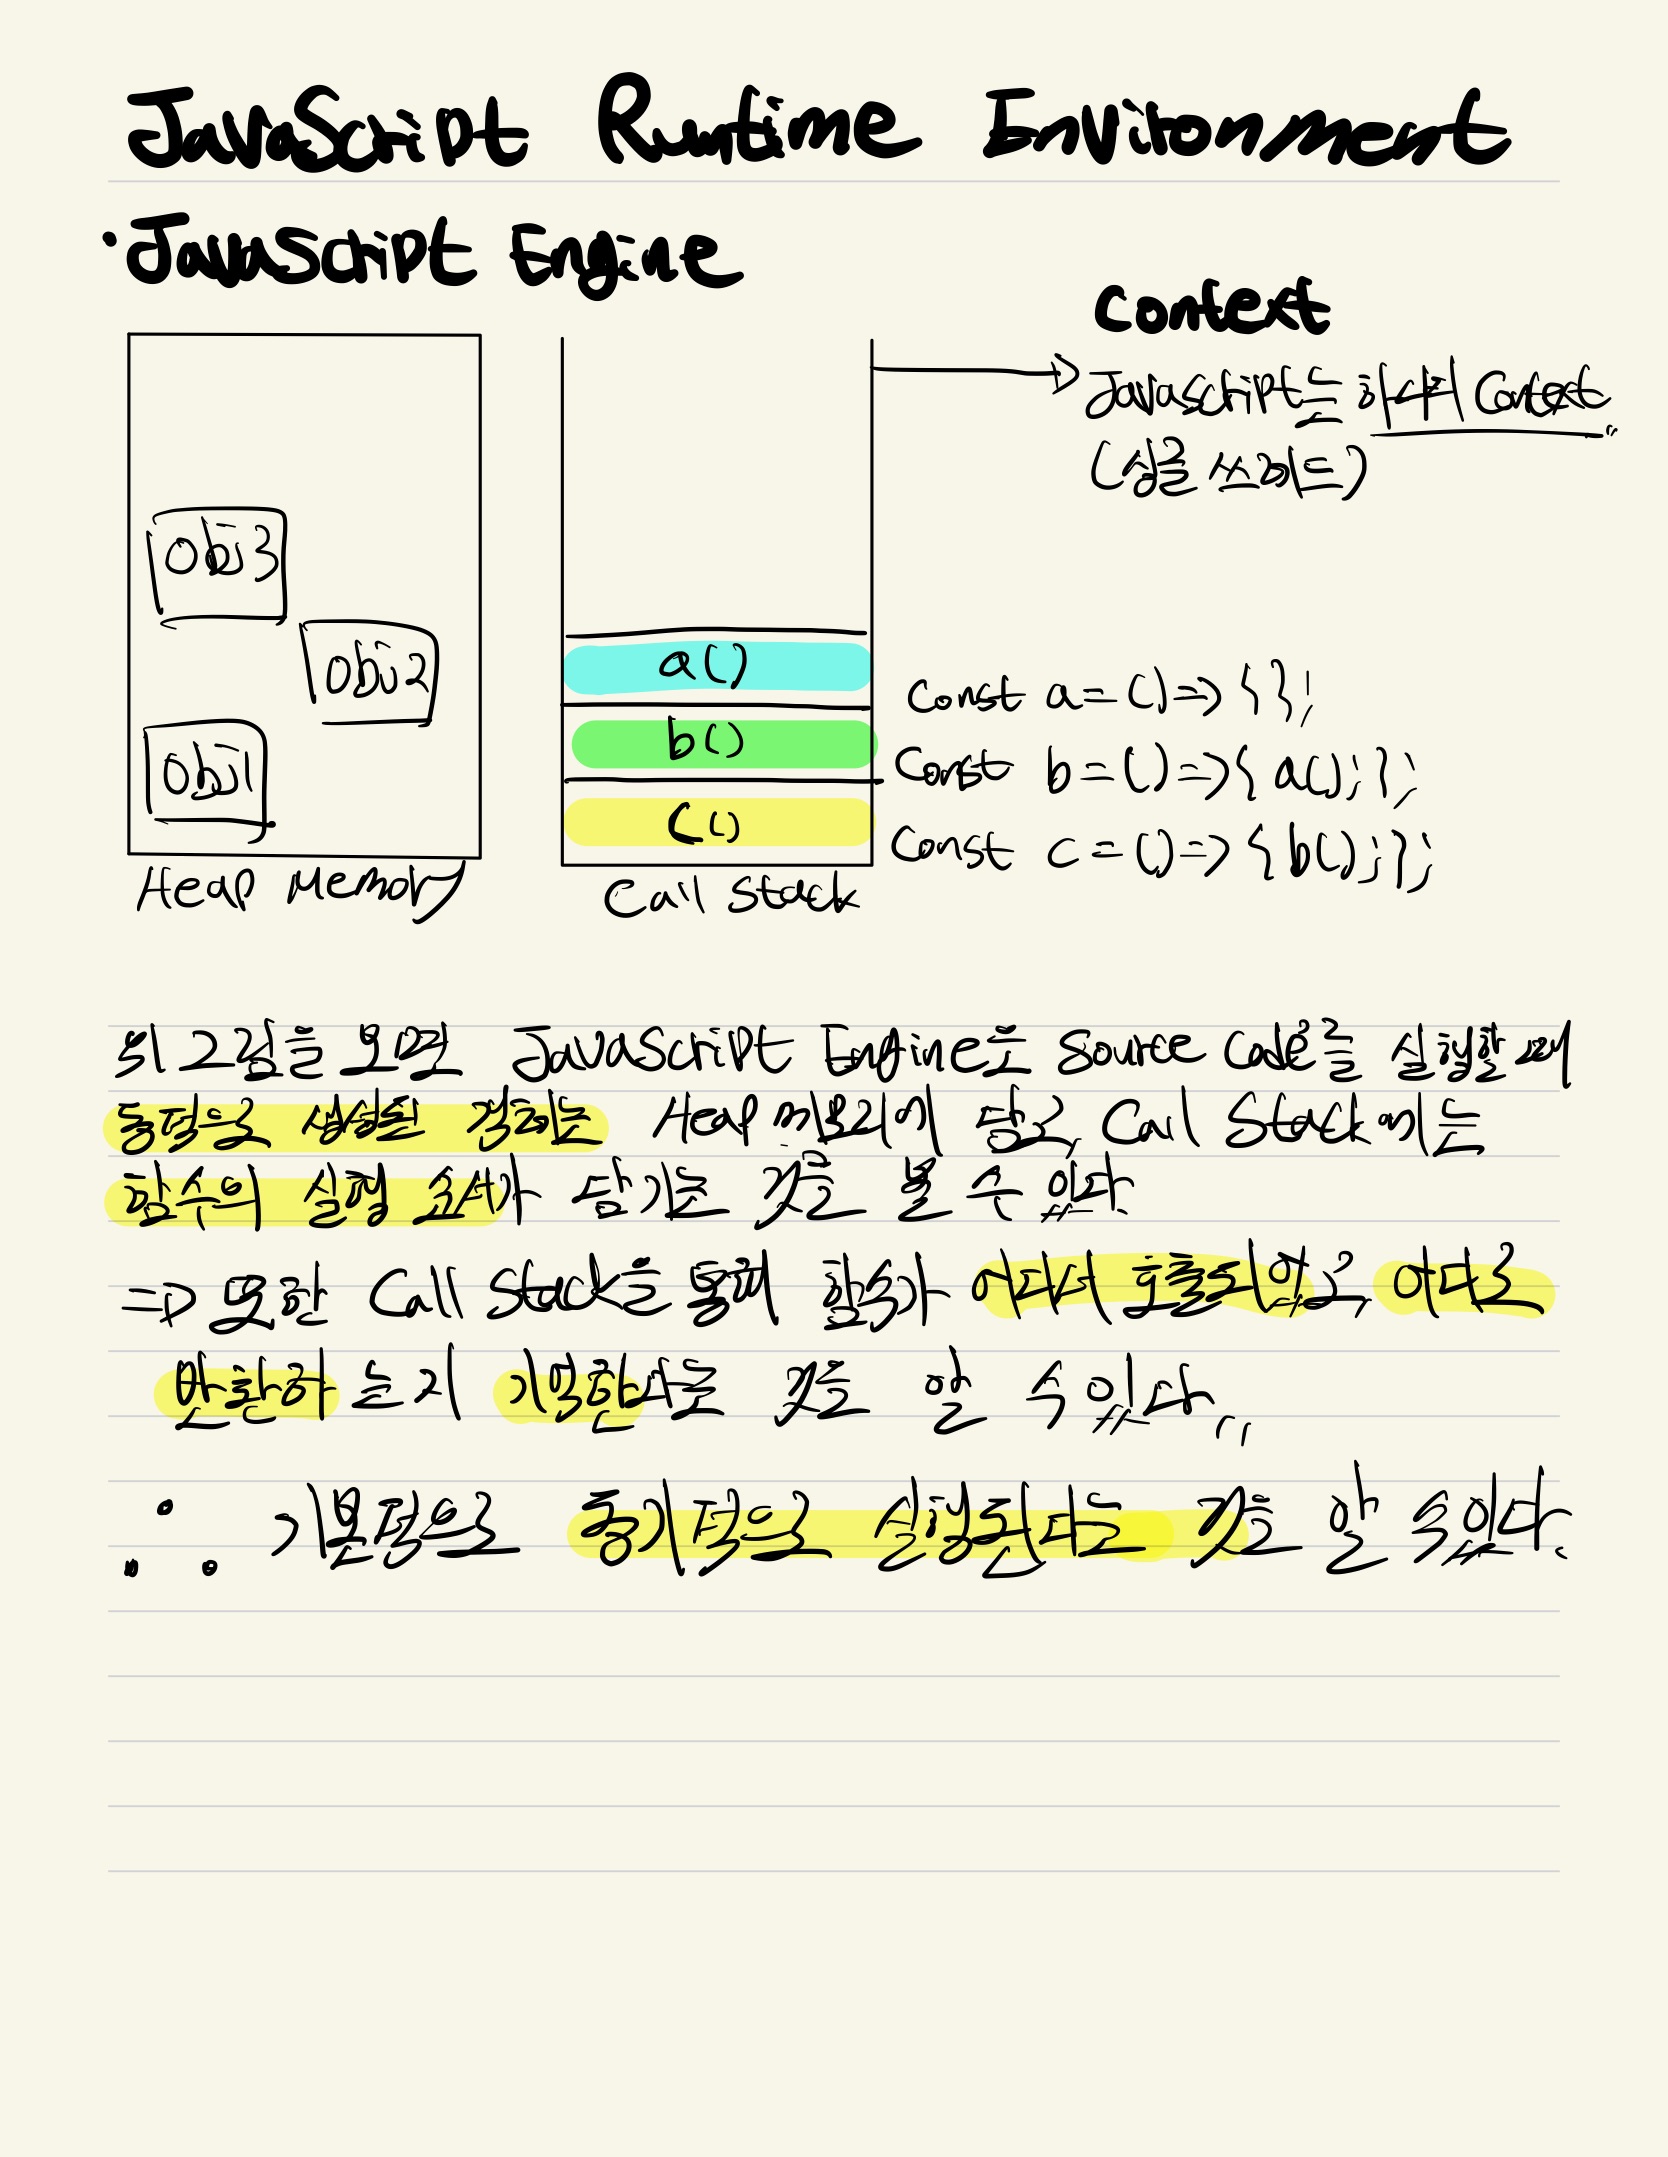 JavaScript Runtime Environment
·JavaScript Engine
Context
JavaScript는 하나의 Context
(싱글 쓰레드)
obj3
obj2
obj1
a()
b()
c()
const a=()=>{};
const b=()=>{a();};
const c=()=>{b();};
Heap Memory
Call Stack
위 그림을 보면 JavaScript Engine은 Source Code를 실행할 때
동적으로 생성된 객체는 Heap 메모리에 담고, Call Stack에는
함수의 실행 순서가 담기는 것을 볼 수 있다.
=> 또한 Call Stack을 통해 함수가 어디서 호출되었고, 어디로
반환하는지 기억한다는 것을 알 수 있다.,,
∴ 기본적으로 동기적으로 실행된다는 것을 알 수 있다.